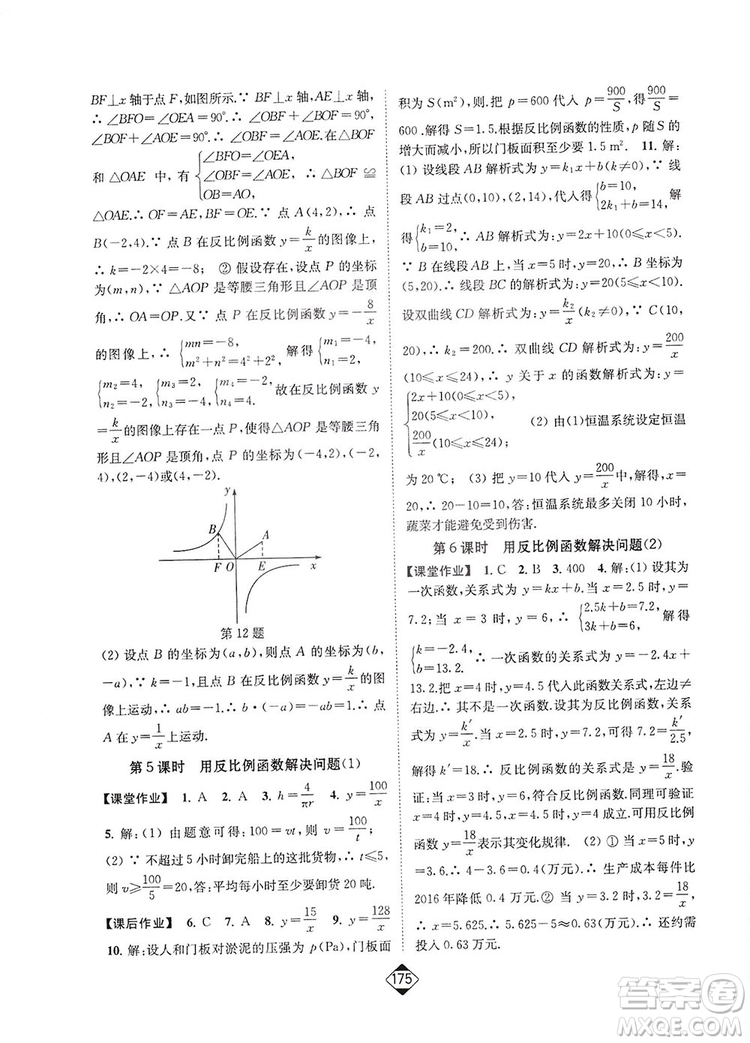 BF⊥x 轴于点 F,如图所示.∵ BF⊥x 轴,AE⊥x 轴,
∴ ∠BFO=∠OEA=90°.∴ ∠BOF+∠OBF=90°.
∵ ∠BOF+∠AOE=90°,∴ ∠OBF=∠AOE.在△BOF
和 △OAE 中, 有 {∠BFO=∠OEA, ∠OBF=∠AOE, OB=AO, ∴ △BOF ≌
△OAE.∴ OF=AE,BF=OE.∵ 点 A(4,2),∴ 点
B(-2,4).∵ 点 B 在反比例函数 y=k/x 的图像上,
∴ k=-2×4=-8; ② 假设存在,设点 P 的坐标
为(m,n),∵ △AOP 是等腰三角形且∠AOP 是顶
角,∴ OA=OP.又∵ 点 P 在反比例函数 y=-8/x
的图像上,∴ {mn=-8, m²+n²=4²+2², 解得{m₁=4, n₁=-2,
{m₂=-4, n₂=2, {m₃=2, n₃=-4, {m₄=-2, n₄=4. 故在反比例函数 y
=k/x的图像上存在一点 P,使得△AOP 是等腰三角
形且∠AOP 是顶角,点 P 的坐标为(4,-2),(-4,
2),(2,-4)或(-2,4).
y
B
A
F
O
E
x
第 12 题
(2) 设点 B 的坐标为(a,b),则点 A 的坐标为(b,
-a),∵ k=-1,∴ 点 B 在反比例函数 y=k/x的图
像上运动,∴ ab=-1.∴ b·(-a)=-ab=1.∴ 点
A 在 y=1/x的图像上运动.
第 5 课时 用反比例函数解决问题(1)
【课堂作业】 1. A 2. A 3. h=4/πr 4. y=100/x
5. 解:(1) 由题意可得:100=vt,则 v=100/t
(2) ∵ 不超过 5 小时卸完船上的这批货物,∴ t≤5,
则 v≥100/5=20.答:平均每小时至少要卸货 20 吨.
【课后作业】 6. C 7. A 8. y=15/x 9. y=128/x
10. 解:设人和门板对淤泥的压强为 p(Pa),门板面
积为 S(m²),则.把 p=600 代入 p=900/S,得900/S=
600.解得 S=1.5.根据反比例函数的性质,p 随S的
增大而减小,所以门板面积至少要 1.5 m². 11. 解:
(1) 设线段 AB 解析式为 y=k₁x+b(k≠0),∵ 线
段 AB 过点(0,10),(2,14),代入得{b=10, 2k₁+b=14, 解
得{k₁=2, b=10. ∴ AB 解析式为:y=2x+10(0≤x<5).
∵ B 在线段 AB 上当 x=5 时,y=20,∴ B 坐标为
(5,20).∴ 线段 BC 的解析式为:y=20(5≤x<10).
设双曲线 CD 解析式为:y=k₂/x(k₂≠0),∵ C(10,
20),∴ k₂=200.∴ 双曲线 CD 解析式为:y=200/x
(10≤x≤24).∴ y 关于 x 的函数解析式为:y=
{2x+10(0≤x<5), 20(5≤x≤10), 200/x(10≤x≤24); (2) 由(1)恒温系统设定恒温
为 20℃; (3) 把 y=10 代入 y=200/x中,解得 x=
20,∴ 20-10=10,答:恒温系统最多关闭 10 小时,
蔬菜才能避免受到伤害.
第 6 课时 用反比例函数解决问题(2)
【课堂作业】 1. C 2. B 3. 400 4. 解:(1) 设其为
一次函数,关系式为 y=kx+b,当 x=2.5 时,y=
7.2;当 x=3 时,y=6,∴ {2.5k+b=7.2, 3k+b=6. 解得
{k=-2.4, b=13.2. ∴ 一次函数的关系式为 y=-2.4x+
13.2.把 x=4 时,y=4.5 代入此函数关系式,左边≠
右边.∴ 其不是一次函数.设其为反比例函数 y=k′/x.
当 x=2.5 时,y=7.2,代入 y=k′/x,得 7.2=k′/2.5,
解得 k′=18,∴ 反比例函数关系式为 y=18/x.验
证:当 x=3 时,y=6,符合反比例函数.同理可验证
x=4 时,y=4.5;x=4.5 时,y=4 成立.∴ 可用反比
例函数 y=18/x表示其变化规律. (2) ① 当 x=5 时,
y=3.6.∴ 4-3.6=0.4(万元).∴ 生产成本每件比
2016 年降低 0.4 万元.② 当 y=3.2 时,3.2=18/x.
∴ x=5.625.∴ 5.625-5≈0.63(万元).∴ 还约需
投入 0.63 万元.
175
答案圈
MXQE.COM